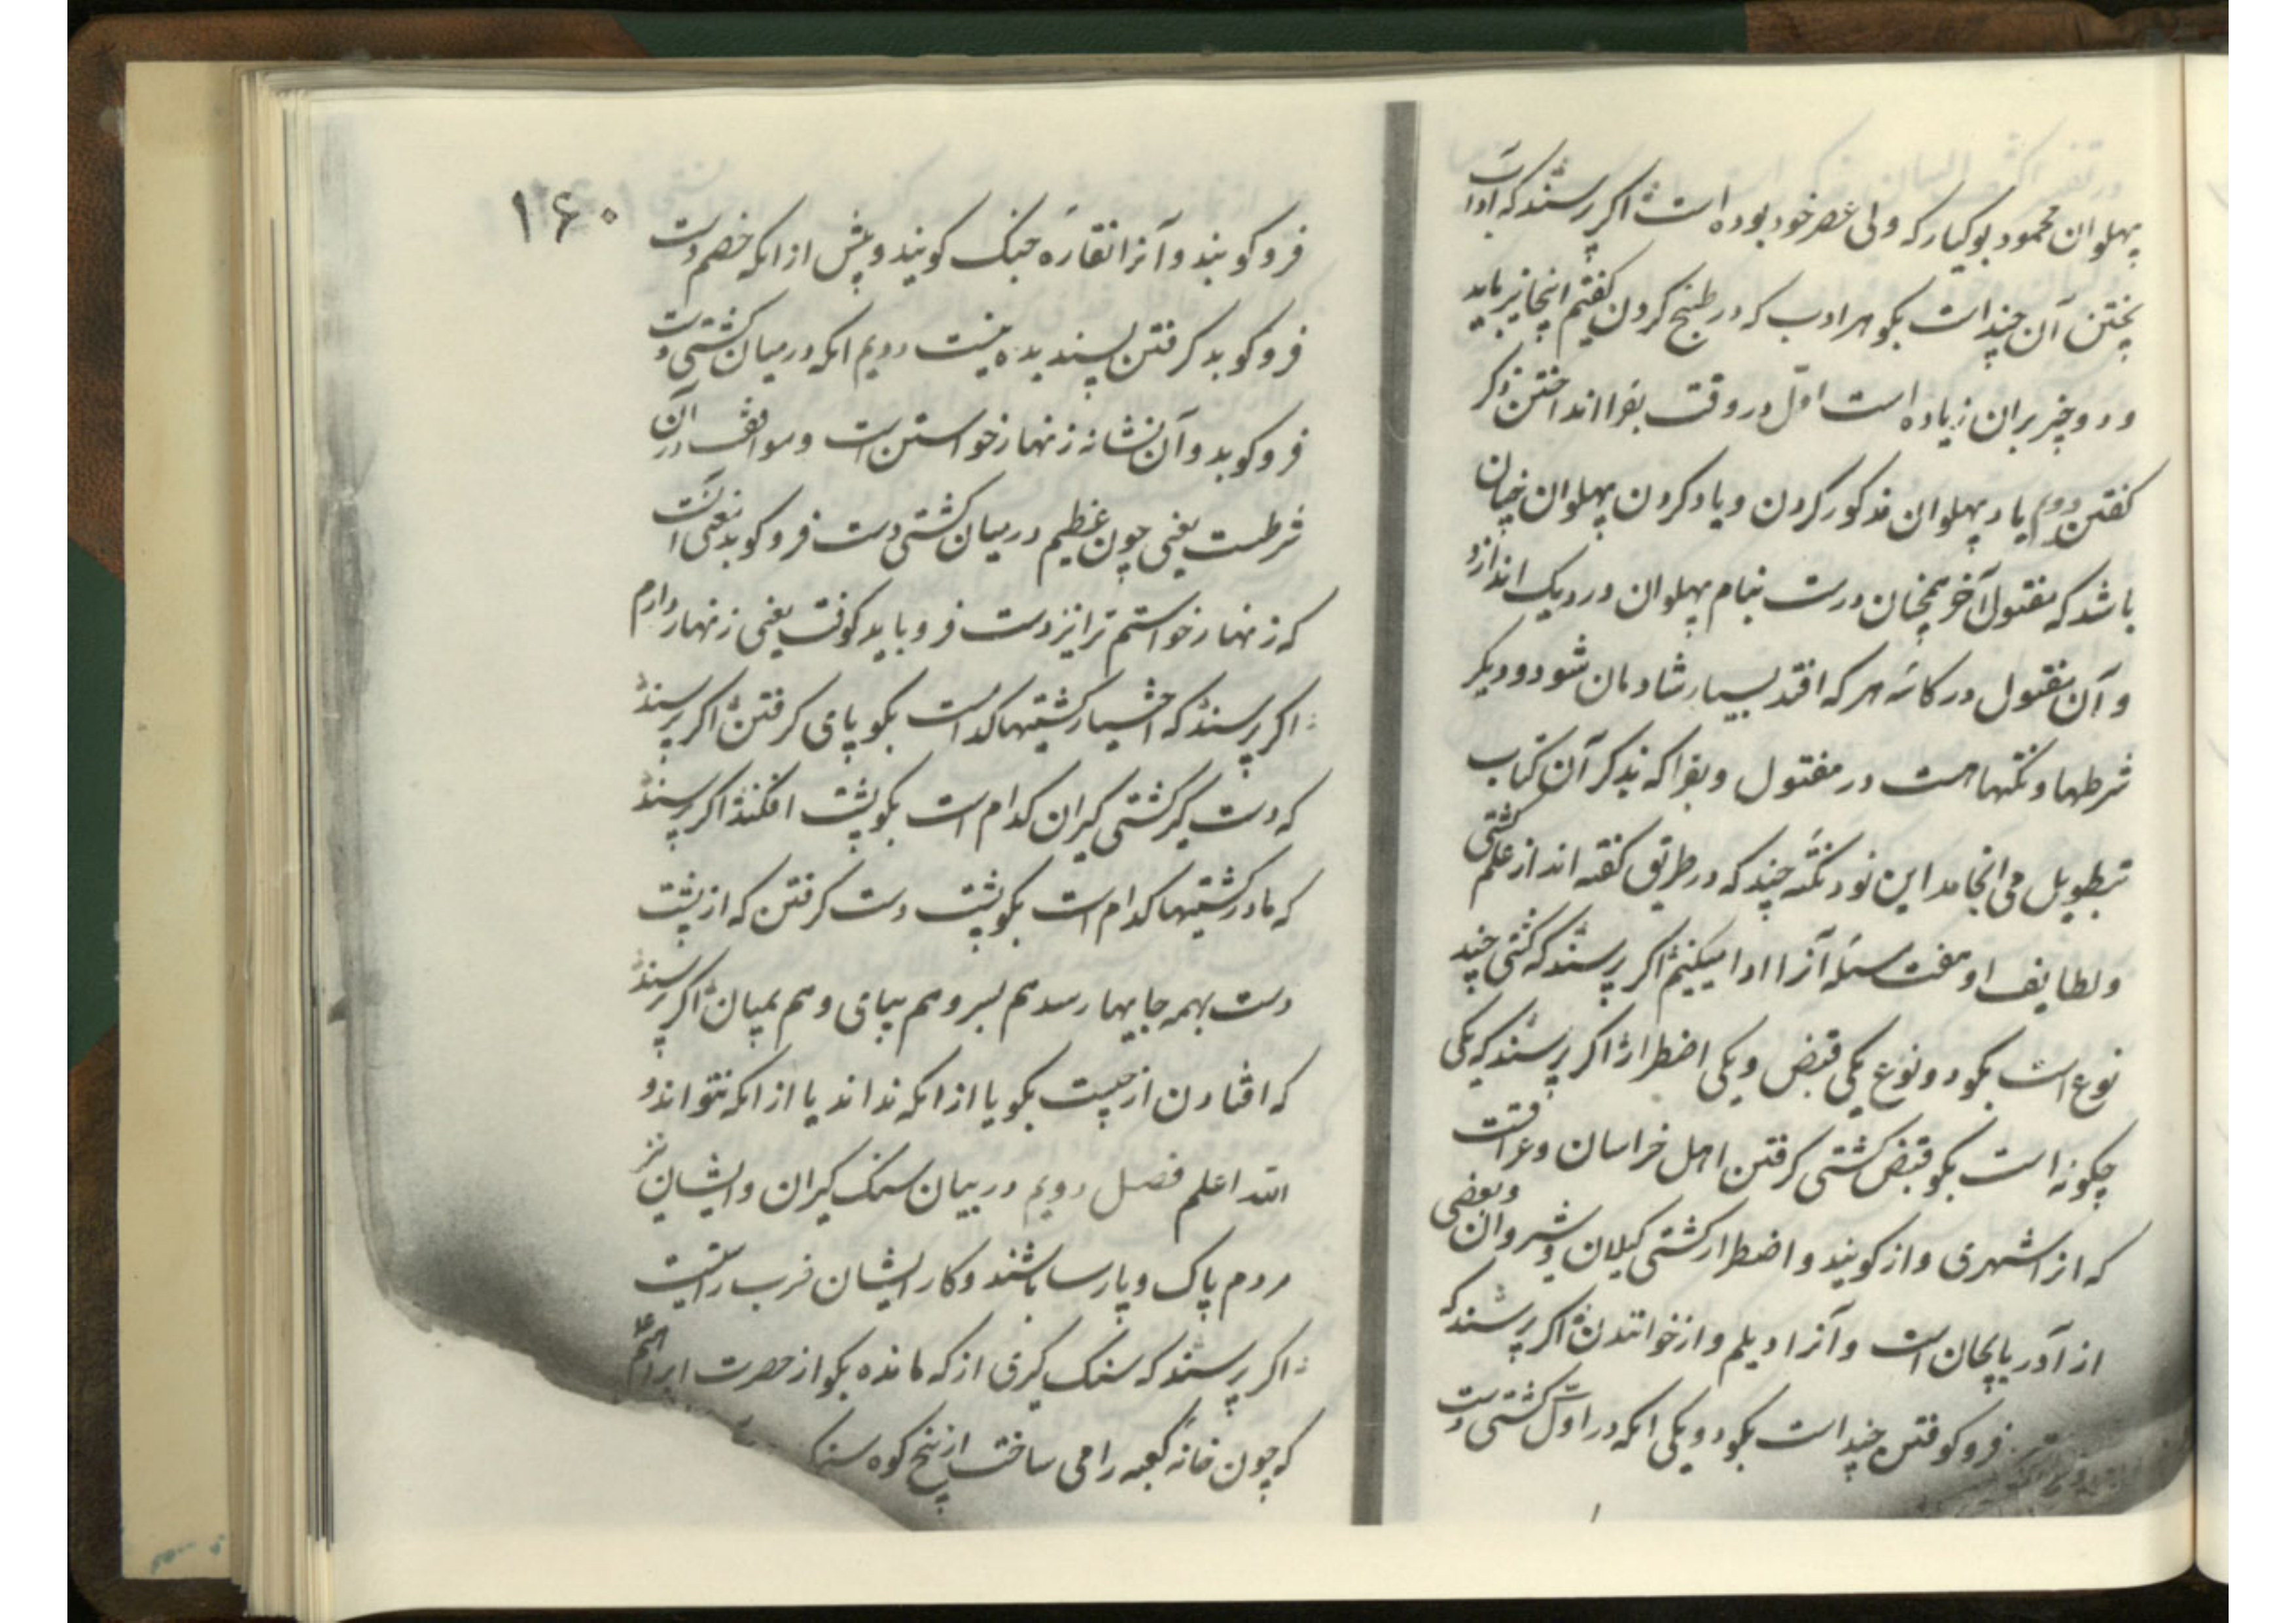 پهلوان محمود بوکیار که ولی عصر خود بوده است اکر پرسند که آداب
پختن آن چند است بکو هر ادب که در طبخ کردن کفتیم اینجا نیز باید
و دو چیز بران زیاده است اول در وقت بغرا انداختن ذکر
کفتن دوم یاد پهلوان مذکور کردن و یاد کردن پهلوان چنان
باشد که مفتول آخر همچنان درست بنام پهلوان در دیک اندازد
و آن مفتول در کاسهٔ هر که افتد بسیار شادمان شود و دیکر
شرطها و نکتها هست در مفتول و بغرا که بذکر آن کتاب
بتطویل می انجامد این بود نکتهٔ چند که در طریق کفته اند از علم کشتی
و لطایف او هفت مسئله آنرا ادا میکنیم اکر پرسند که کشتی چند
نوع است بکو دو نوع یکی قبض و یکی اضطرار اکر پرسند که یکی
چکونه است بکو قبض کشتی کرفتن اهل خراسان و عراقست
که از اشهری واز کویند و اضطرار کشتی کیلان و شروان و بعضی
از آذربایجان است و آنرا دیلم واز خوانندن اکر پرسند که
فرو کوفتن چند است بکو دو یکی انکه در اول کشتی دست
۱۶۰
فرو کوبند و آنرا نقارهٔ جنک کویند و پیش از انکه خصم دست
فرو کوبد کرفتن پسندیده نیست دویم انکه در میان کشتی دست
فرو کوبد و آن نشانه زنهار خواستن است و موافقت در آن
شرطست یعنی چون غنیم در میان کشتی دست فرو کوبد یعنی آنست
که زنهار خواستم ترا نیز دست فرو باید کوفت یعنی زنهار دارم
اکر پرسند که اختیار کشتیها کدامست بکو پای کرفتن اکر پرسند
که دست کیر کشتی کیران کدام است بکو پشت افکند اکر پرسند
که مادر کشتیها کدام است بکو پشت دست کرفتن که از پشت
دست بهمه جایها رسد هم بسر و هم بپای و هم بمیان اکر پرسند
که افتادن از چیست بکو یا از انکه نداند یا از انکه نتواند و
الله اعلم فصل دویم در بیان سنک کیران و ایشان نیز
مردم پاک و پارسا باشند و کار ایشان ضرب راستیست
اکر پرسند که سنک کیری از که مانده بکو از حضرت ابراهیم ع
که چون خانهٔ کعبه را می ساخت از پنج کوه سنک